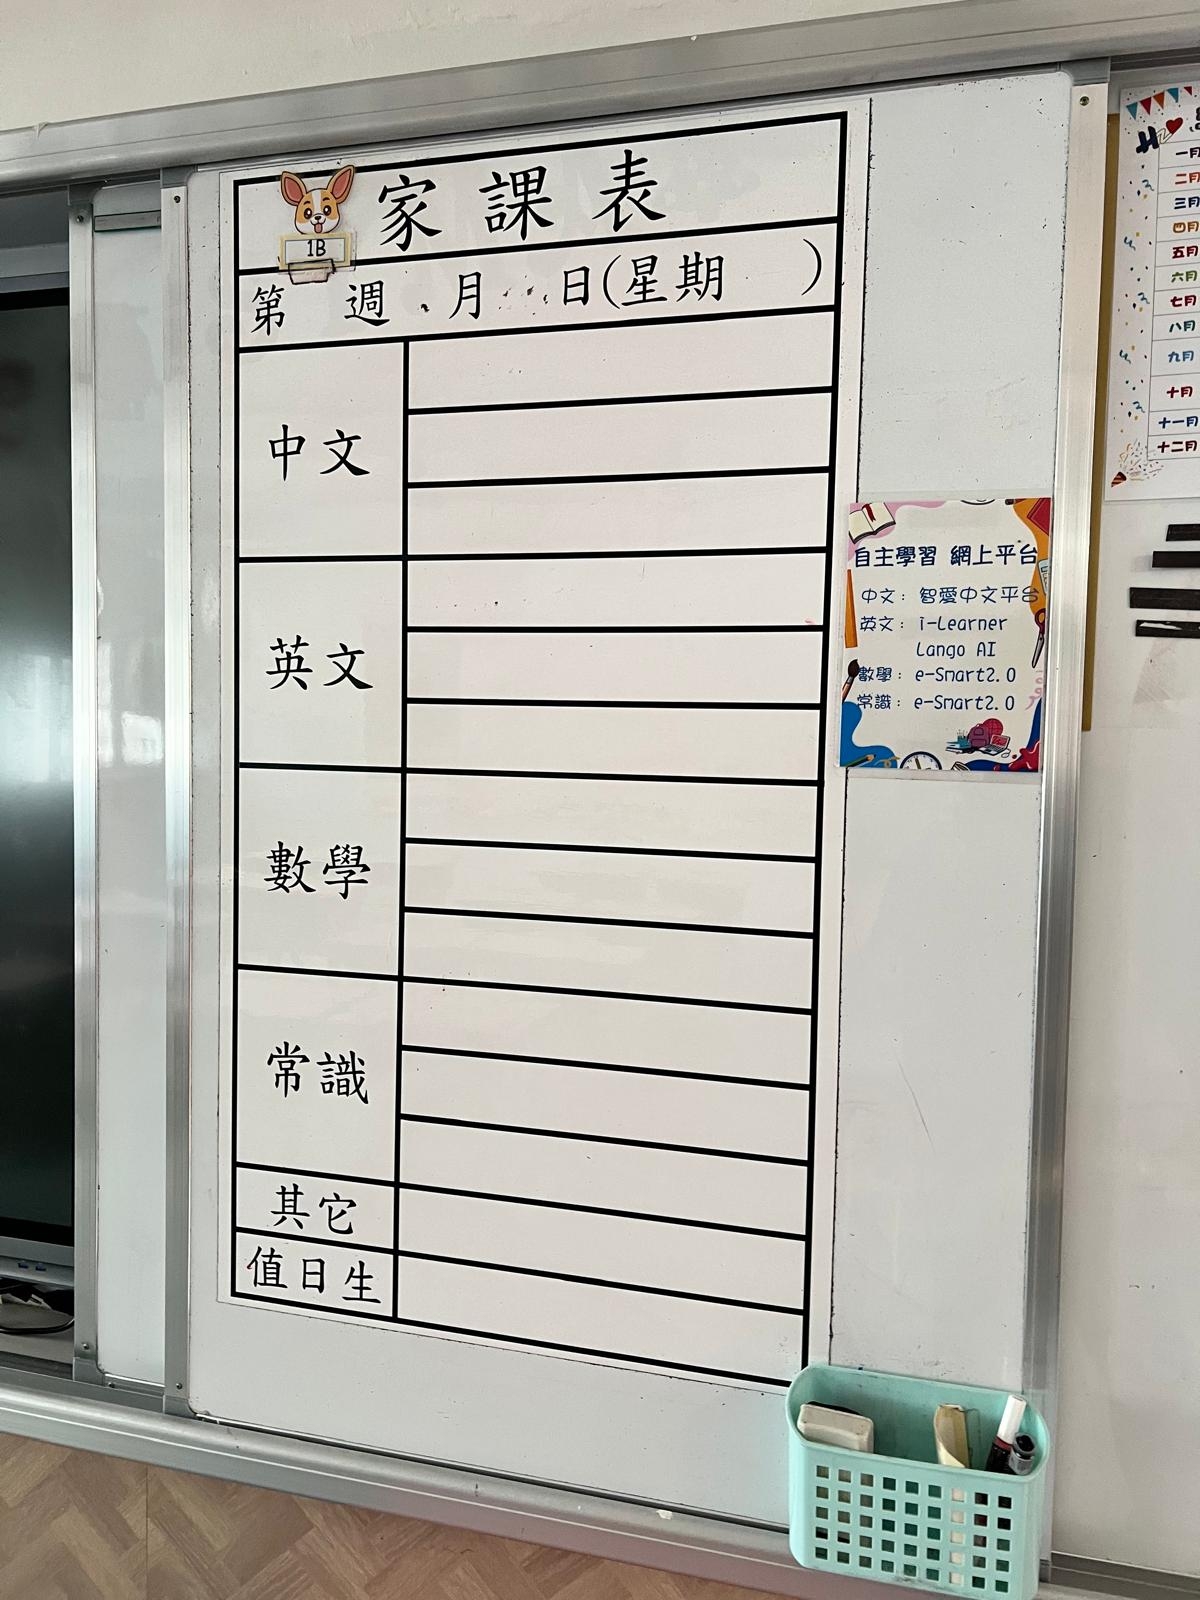 家課表
1B
第 週 月 日(星期 )
中文
英文
數學
常識
其它
值日生
自主學習 網上平台
中文: 智愛中文平台
英文: i-Learner
Lango AI
數學: e-Smart2.0
常識: e-Smart2.0
一月
二月
三月
四月
五月
六月
七月
八月
九月
十月
十一月
十二月